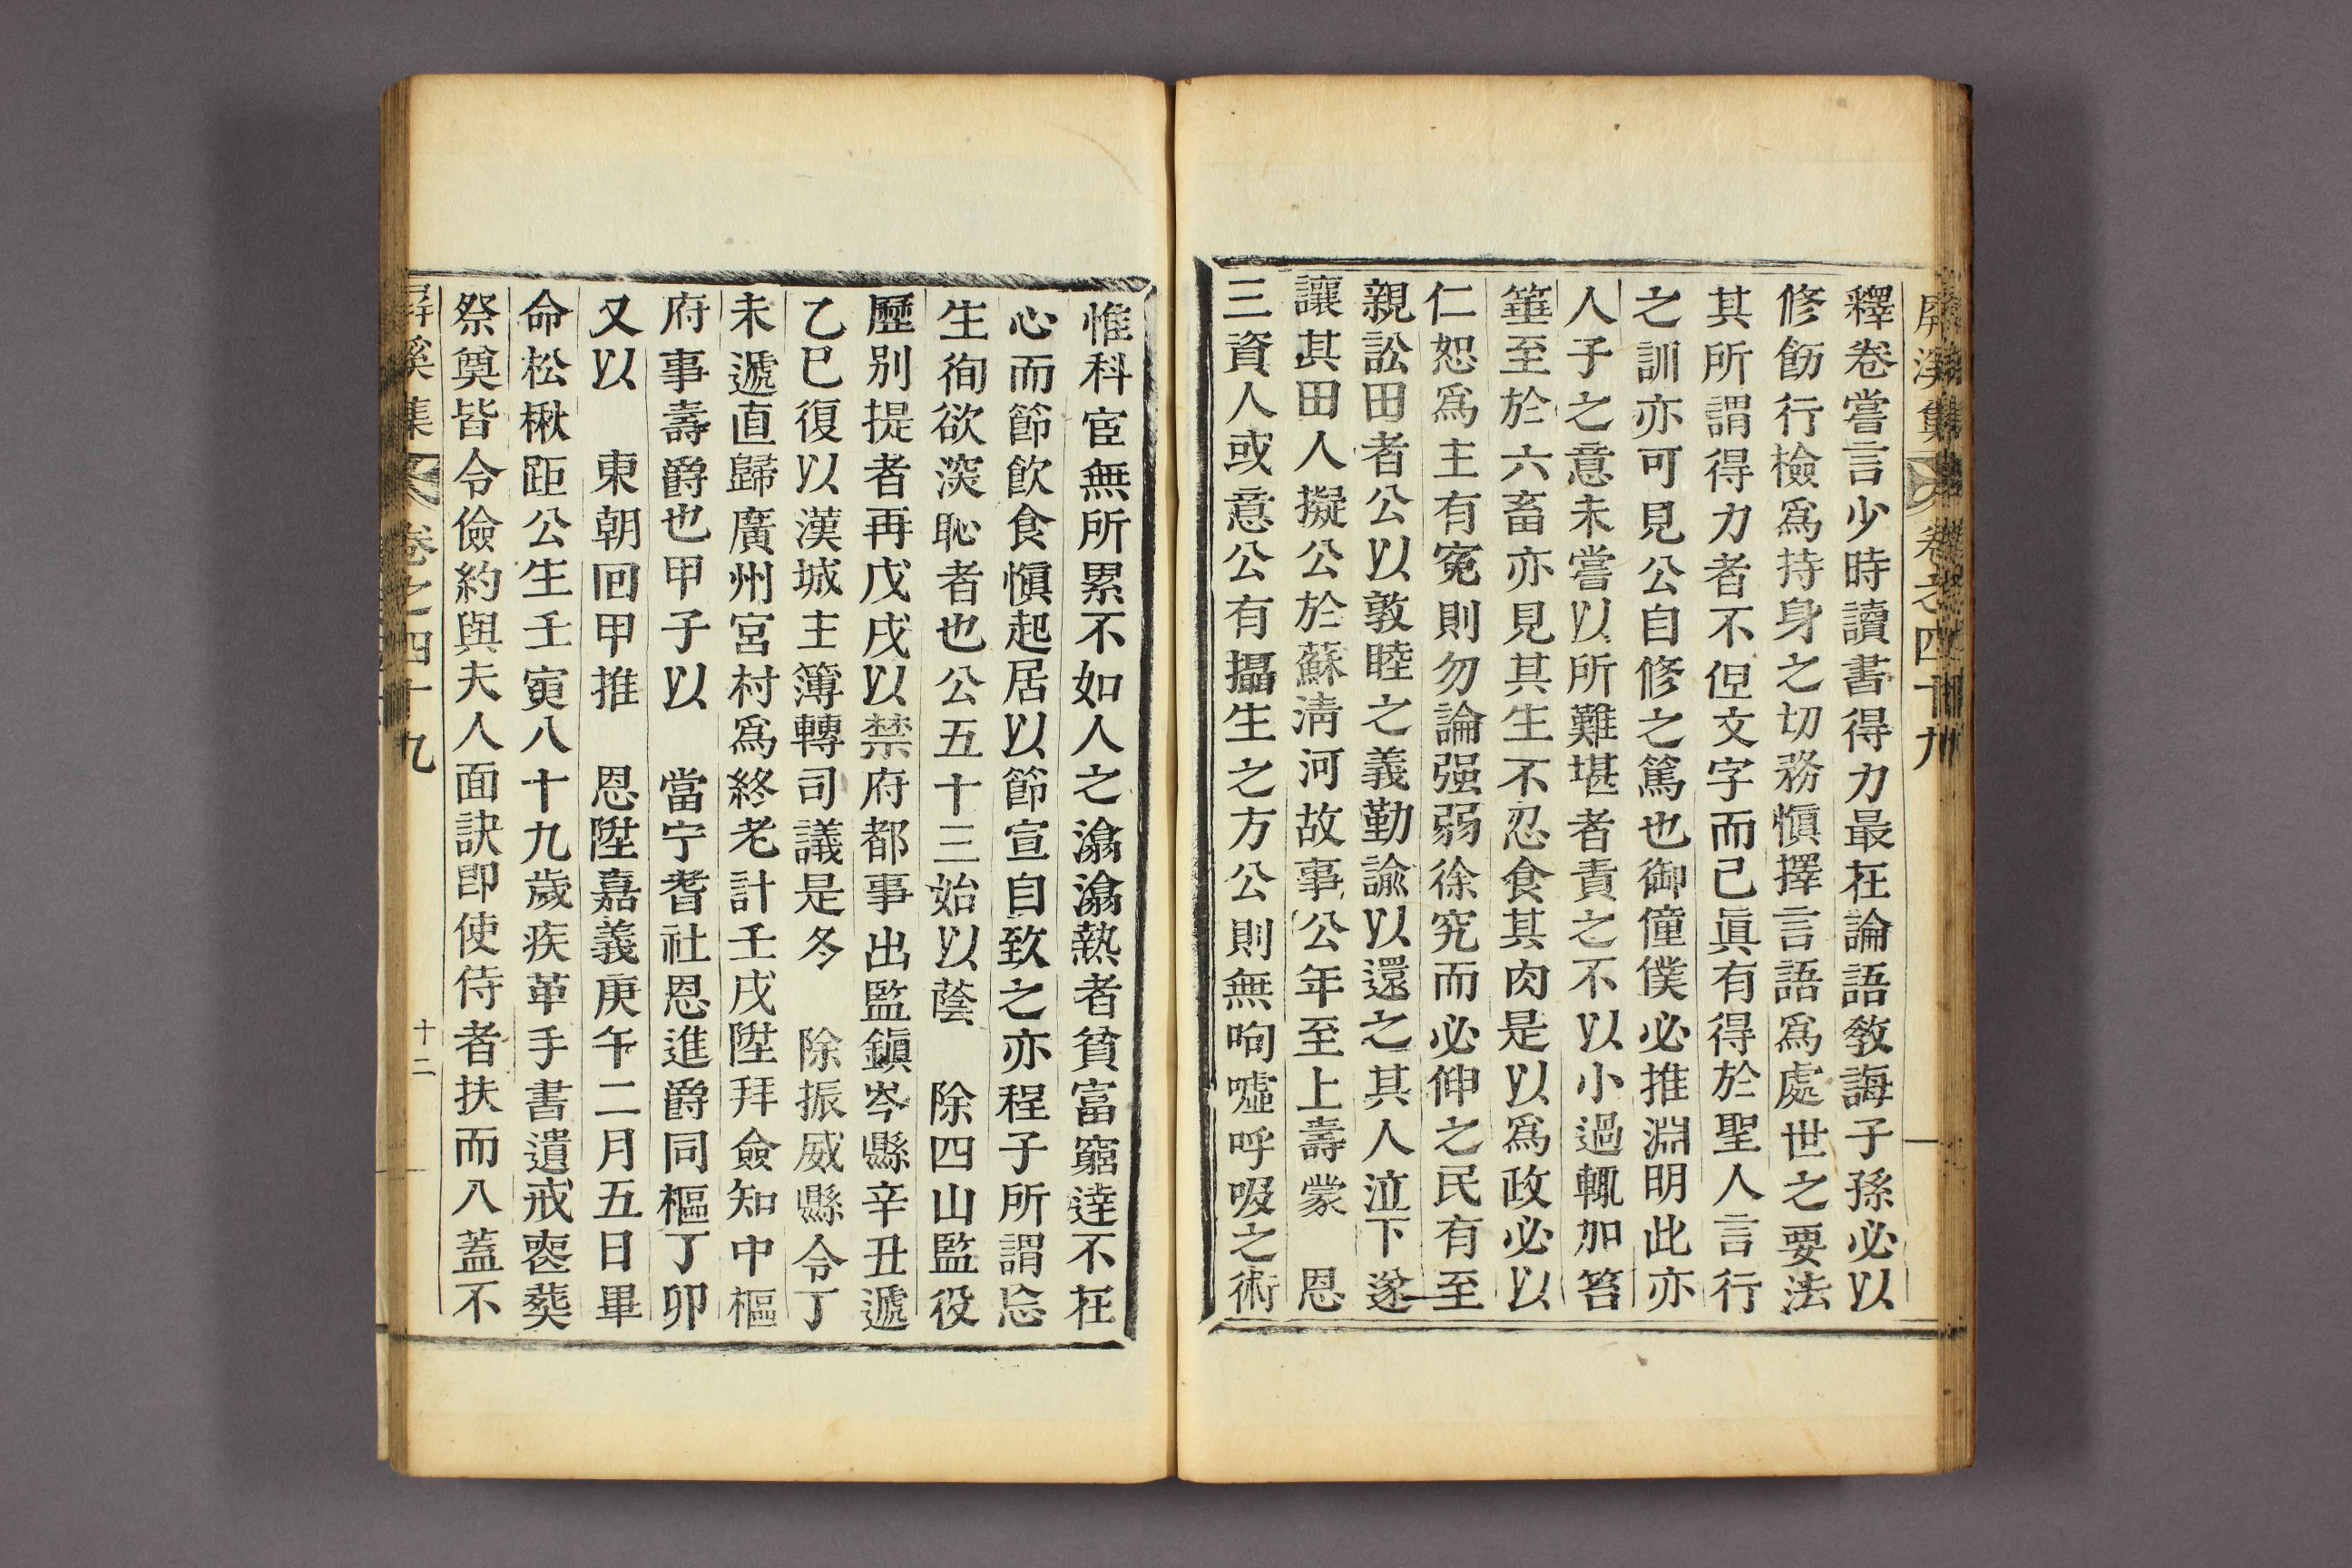 屛溪集 卷之四十九
釋卷嘗言少時讀書得力最在論語敎誨子孫必以
修飭行檢爲持身之切務愼擇言語爲處世之要法
其所謂得力者不但文字而已眞有得於聖人言行
之訓亦可見公自修之篤也御僮僕必推淵明此亦
人子之意未嘗以所難堪者責之不以小過輒加笞
箠至於六畜亦見其生不忍食其肉是以爲政必以
仁恕爲主有寃則勿論强弱徐究而必伸之民有至
親訟田者公以敦睦之義勤諭以還之其人泣下遂
讓其田人擬公於蘇淸河故事公年至上壽蒙 恩
三資人或意公有攝生之方公則無呴噓呼吸之術
惟科宦無所累不如人之滃滃熱者貧富窮達不在
心而節飮食愼起居以節宣自致之亦程子所謂忘
生徇欲深恥者也公五十三始以蔭 除四山監役
歷別提者再戊戌以禁府都事出監鎭岑縣辛丑遞
乙巳復以漢城主簿轉司議是冬 除振威縣令丁
未遞直歸廣州宮村爲終老計壬戌陞拜僉知中樞
府事壽爵也甲子以 當宁耆社恩進爵同樞丁卯
又以 東朝回甲推 恩陞嘉義庚午二月五日畢
命松楸距公生壬寅八十九歲疾革手書遺戒喪葬
祭奠皆令儉約與夫人面訣卽使侍者扶而入蓋不
屛溪集 卷之四十九 十二